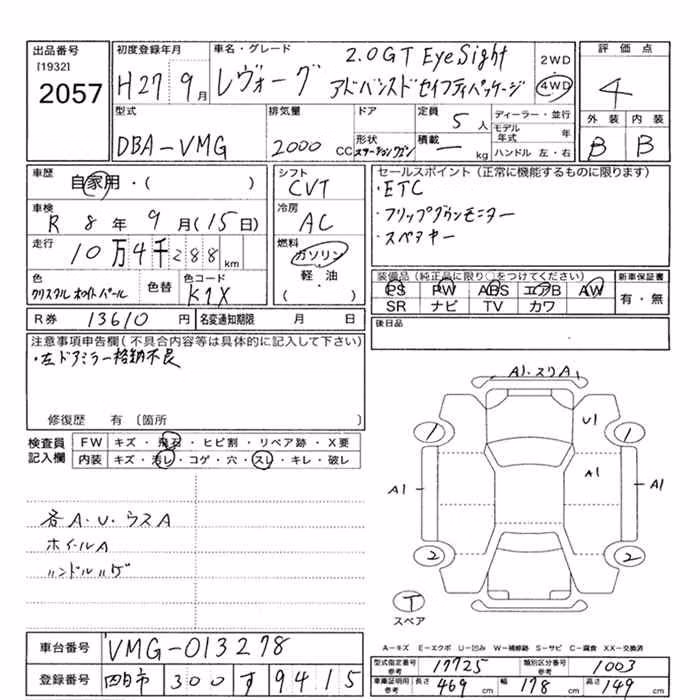 出品番号
[1932]
2057
初度登録年月
H27 9月
車名・グレード
2.0GT EyeSight
レヴォーグ アドバンスドセイフティパッケージ
2WD
4WD
評価点
4
外装 内装
B B
型式
DBA-VMG
排気量
2000 CC
ドア
形状
ステーションワゴン
定員
5 人
積載
ー kg
ディーラー・並行
モデル年式 年
ハンドル 左・右
車歴
自家用・( )
車検
R 8年 9月(15日)
走行
10万4千288km
色
クリスタルホワイトパール
色替
色コード
K1X
シフト
CVT
冷房
AC
燃料
ガソリン
軽・油
( )
セールスポイント(正常に機能するものに限ります)
・ETC
・フリップダウンモニター
・スペアキー
装備品(純正品に限り○をつけてください)
PS PW ABS エアB AW
SR ナビ TV カワ
新車保証書
有・無
R券 13610円
名変通知期限 月 日
後日品
注意事項申告欄(不具合内容等は具体的に記入して下さい)
・左ドアミラー格納不良
修復歴 有〔箇所 〕
検査員記入欄
FW キズ・飛石・ヒビ割・リペア跡・X要
内装 キズ・汚レ・コゲ・穴・スレ・キレ・破レ
各A.U.ウスA
ホイールA
ハンドルハゲ
A1.スリA
1 U1 1
A1 A1 A1
2 2
T
スペア
A-キズ E-エクボ U-凹み W-補修跡 S-サビ C-腐食 XX-交換済
車台番号 VMG-013278
登録番号 四日市 300 す 9415
型式指定番号 参考 17725
類別区分番号 参考 1003
車庫証明用 参考 長さ 469 cm 幅 178 cm 高さ 149 cm